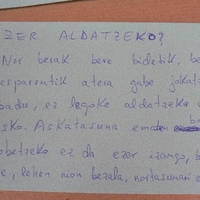 ZER ALDATZEKO?
Nor berak bere bidetik, be
esparrutik atera gabe jokatz
badu, ez legoke aldatzeko
asko. Askatasuna
obetzeko ez da ezer izango, b
e, lehen nion bezala, nortasunari e